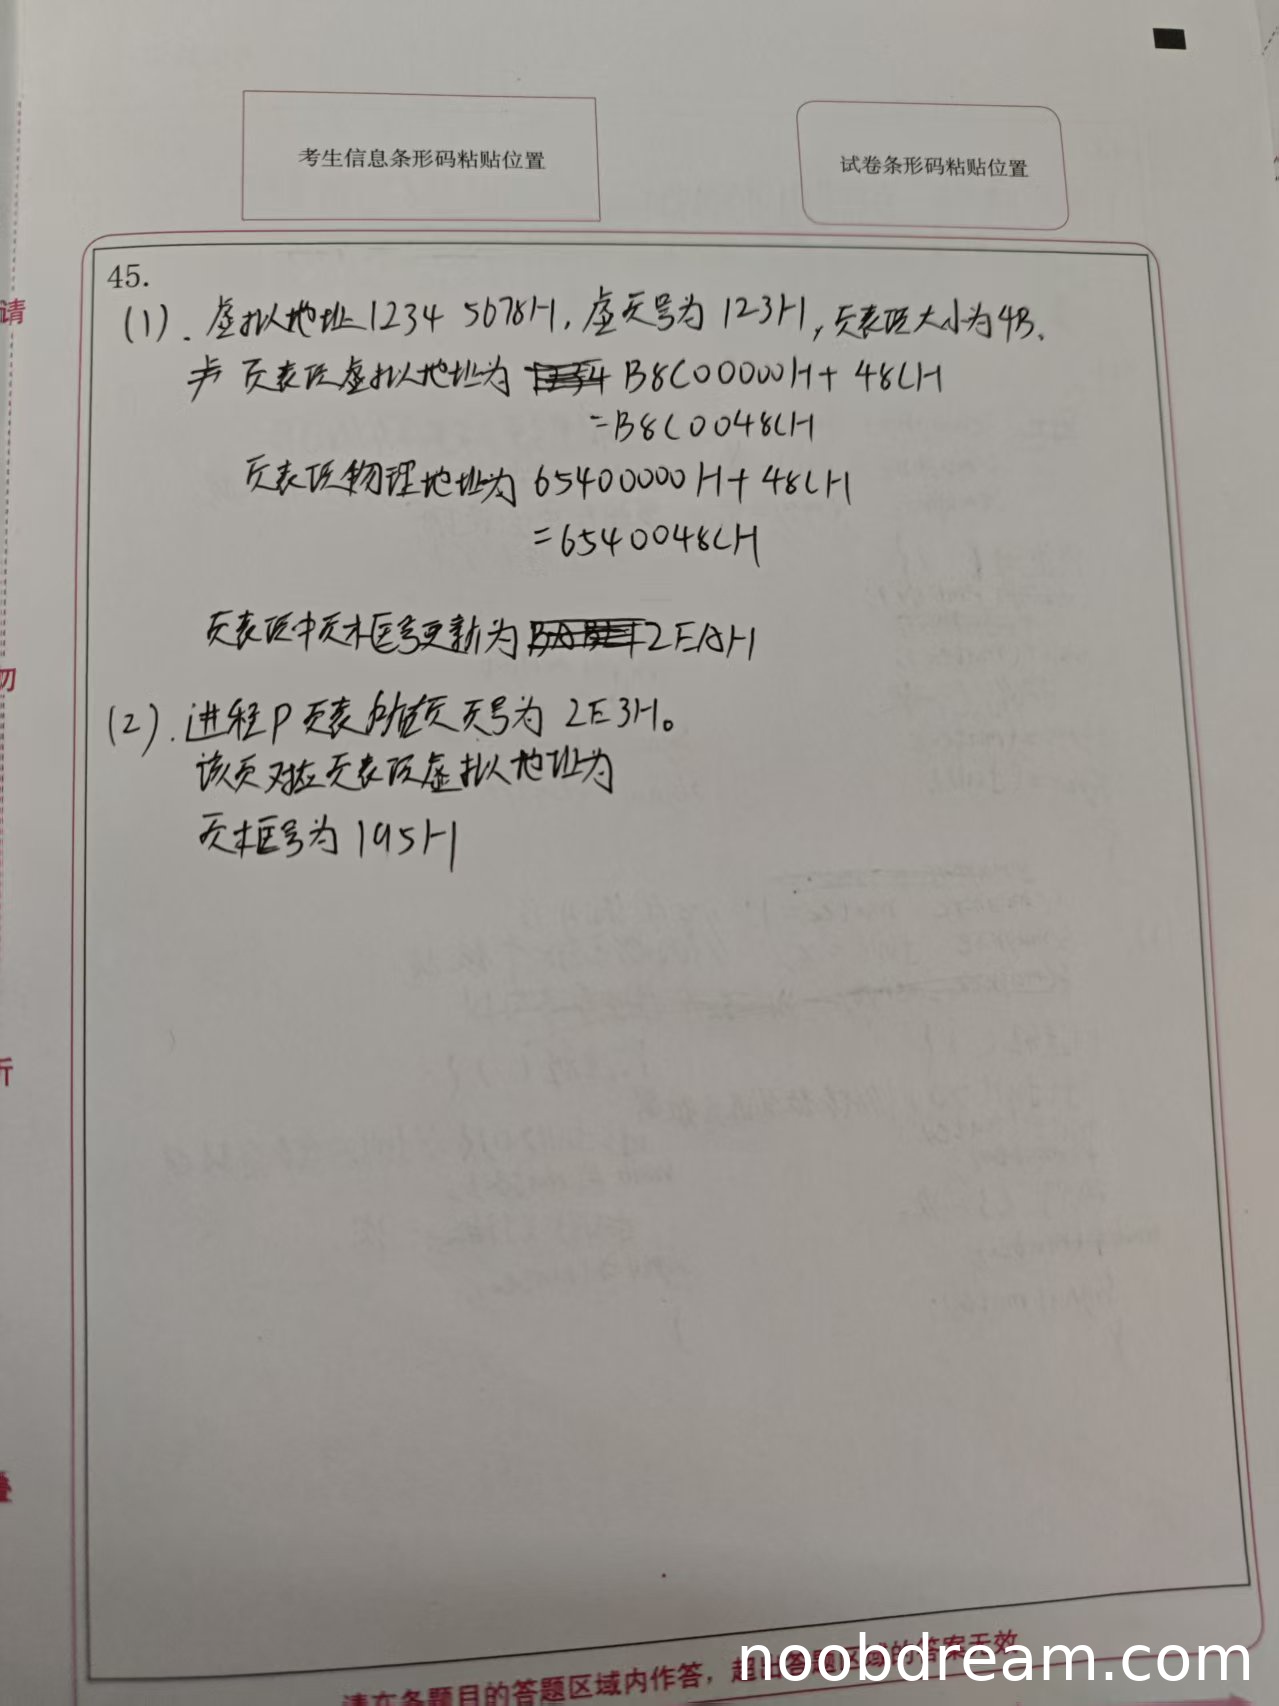 考生信息条形码粘贴位置
试卷条形码粘贴位置
请
勿
折
叠
45.
(1). 虚拟地址1234 5678H, 虚页号为 123H, 页表项大小为4B.
页表项虚拟地址为 B8C00000H+ 48CH
=B8C0048CH
页表项物理地址为 65400000H+ 48CH
=6540048CH
页表项中页框号更新为 2EAH
(2). 进程P 页表所在页页号为 2E3H。
该页对应页表项虚拟地址为
页框号为 195H
请在各题目的答题区域内作答, 超出答题区域的答案无效
noobdream.com